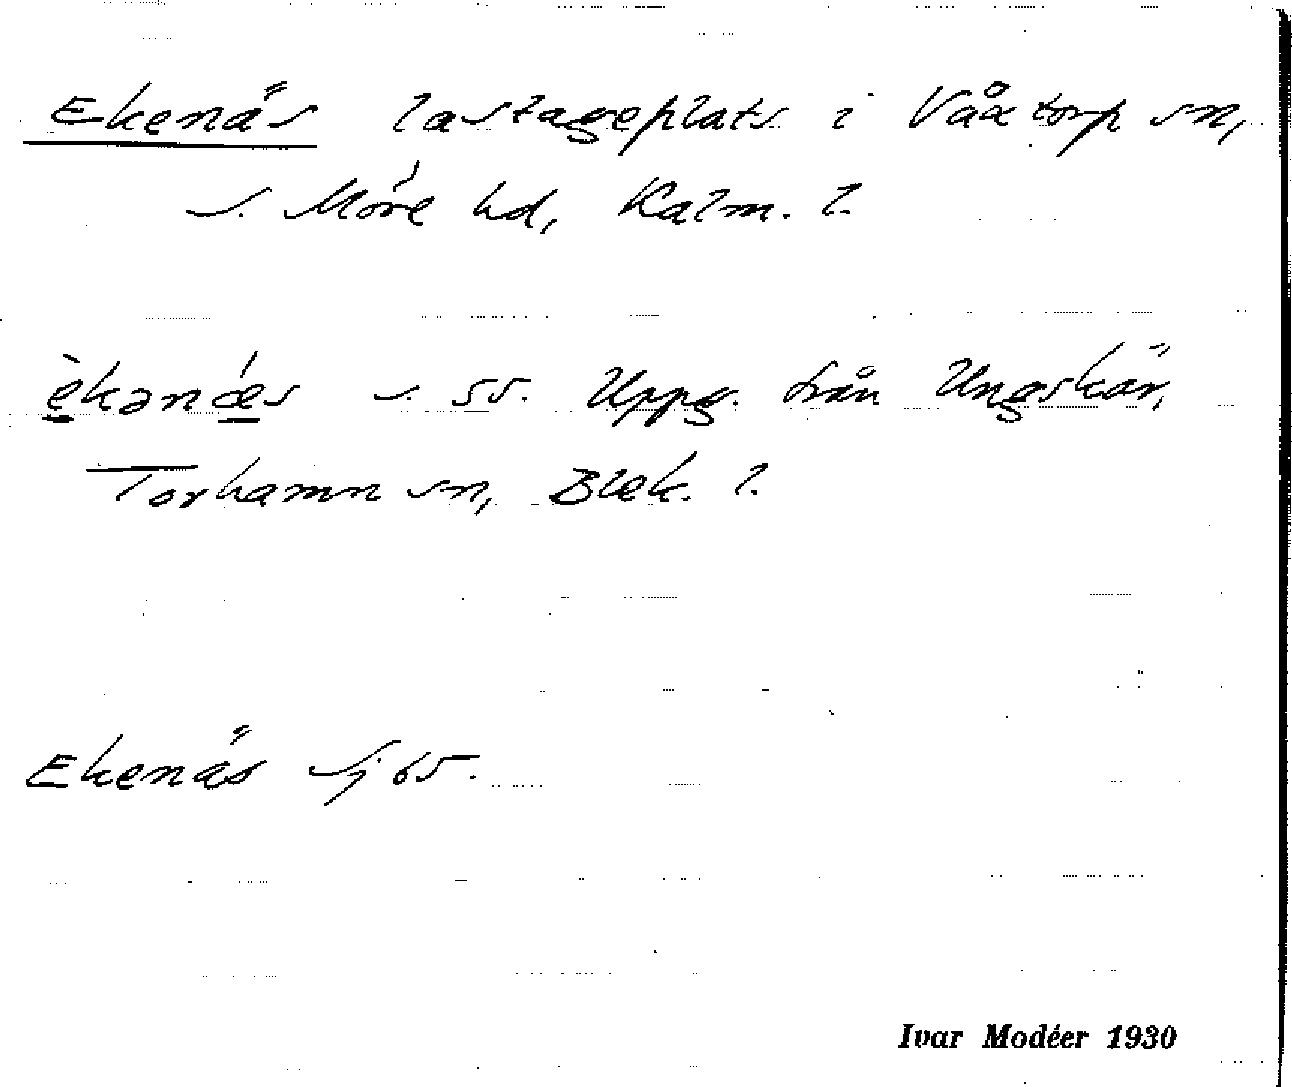 Ekenäs lastageplats i Våxtorp sn,
s. Möre hd, Kalm. l.
èkənǽs s. 55. Uppg. från Ungskär,
Torhamn sn, Blek. l.
Ekenäs Sj 65.
Ivar Modéer 1930